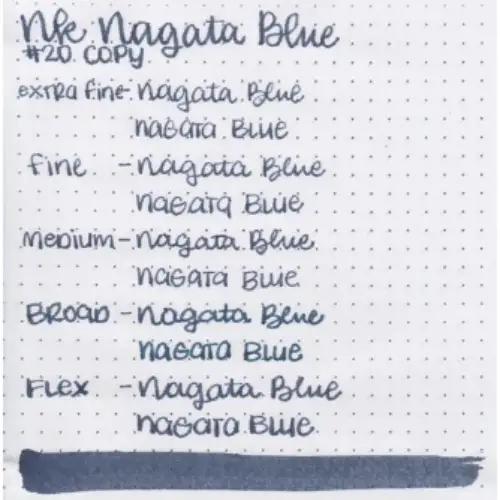 Nk Nagata Blue
#20 COPY
extra fine - Nagata Blue
nagata Blue
fine - Nagata Blue
nagata Blue
Medium - Nagata Blue
nagata Blue
Broad - Nagata Blue
nagata Blue
Flex - Nagata Blue
nagata Blue